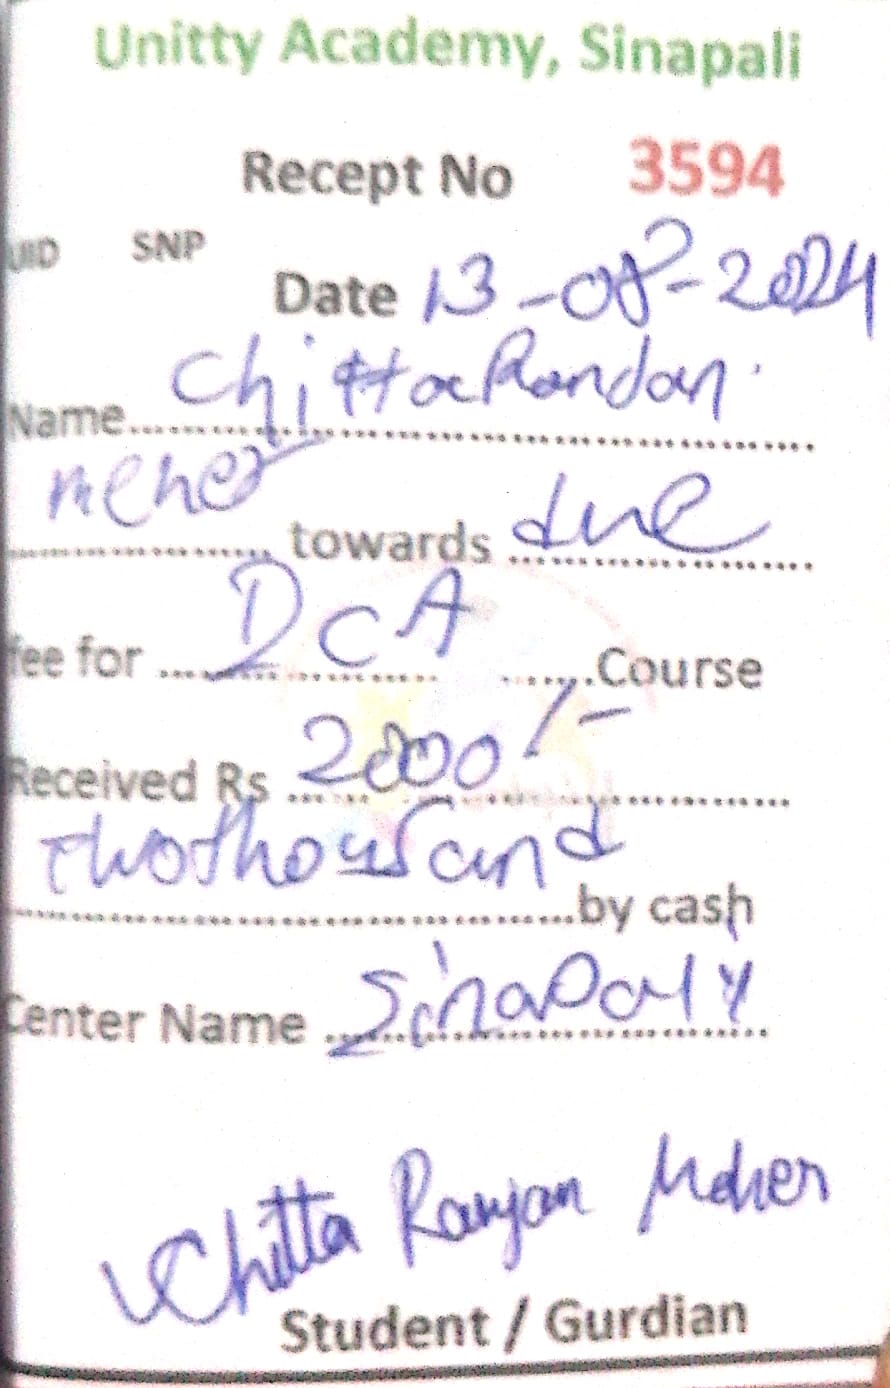 Unitty Academy, Sinapali
Recept No 3594
UID SNP
Date 13-08-2024
Name Chitta Randan
meher towards due
fee for DCA Course
Received Rs 2000/-
twothousand by cash
Center Name Sinapaly
Chitta Ranjan Meher
Student / Gurdian